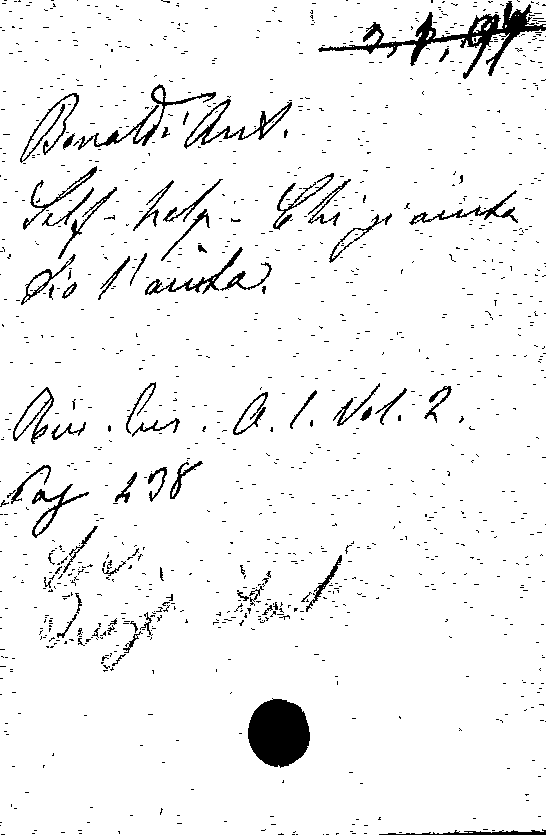 Bonaldi Ant.
Self-help - Chi si aiuta
Dio l'aiuta.
Riv. Eur. A. 1. Vol. 2.
Pag 238